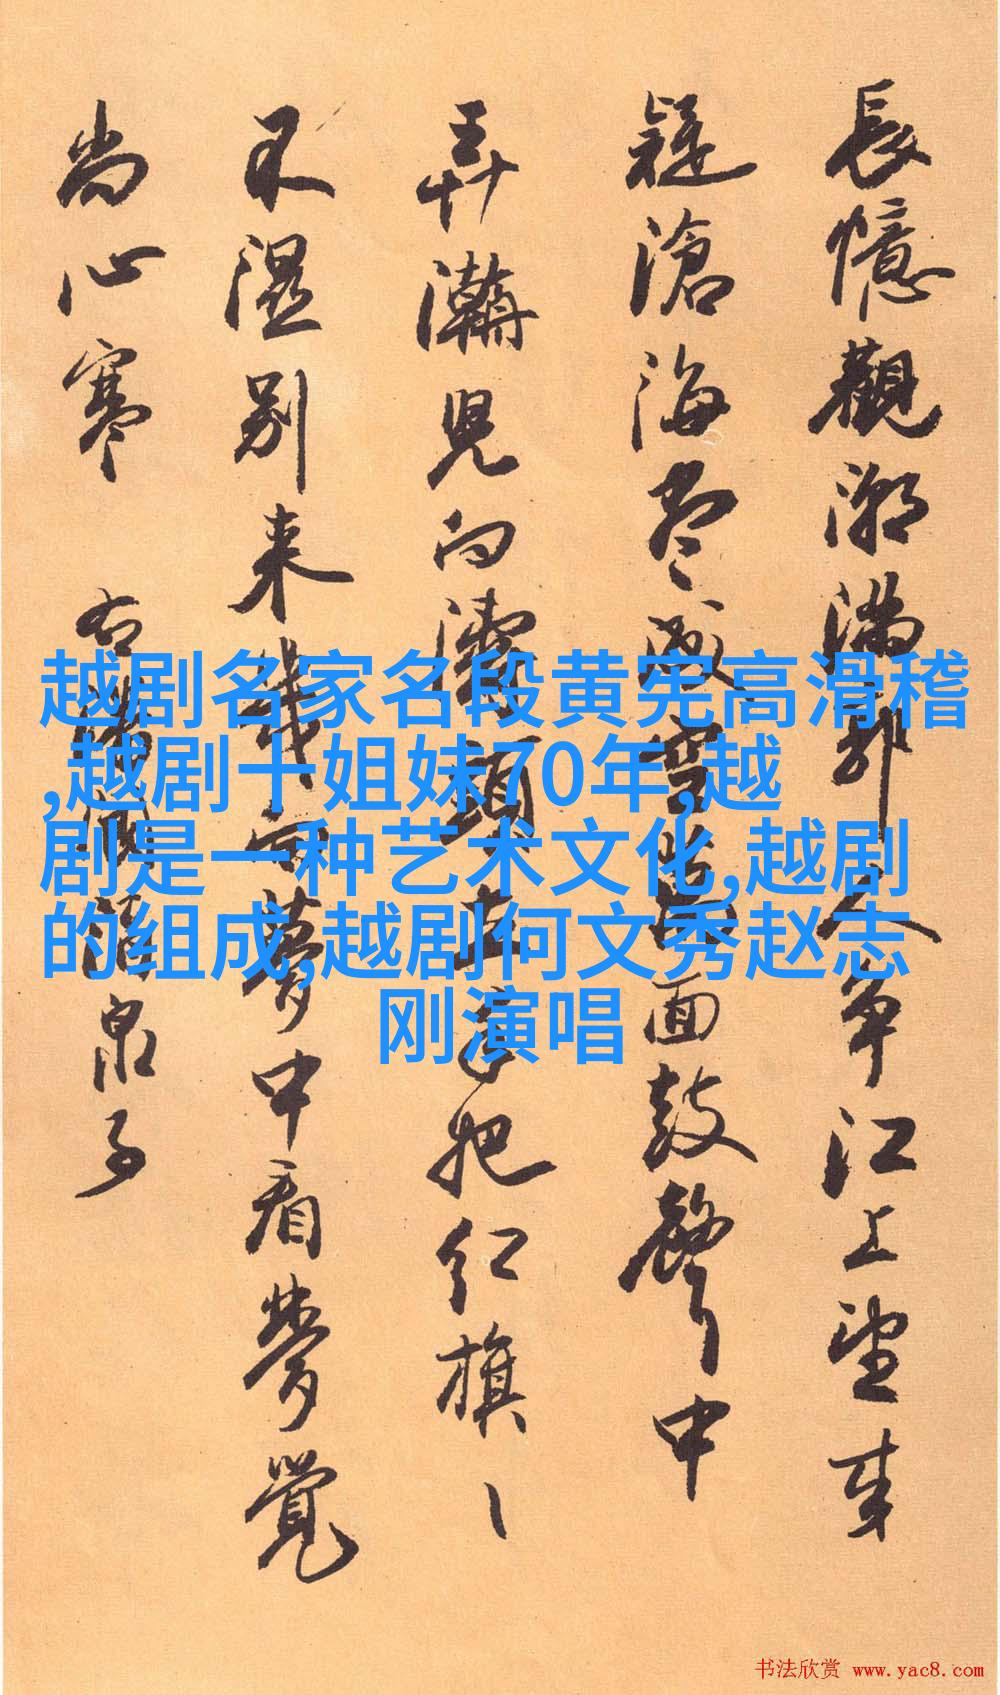 長憶觀潮滿郭人爭江上望來
疑滄海盡成空萬面鼓聲中
弄潮兒向濤頭立手把紅旗ヽ
不濕別来幾向夢中看夢覺
尚心寒 右潘閬酒泉子
越剧名家名段黄宪高滑稽
,越剧十姐妹70年,越
剧是一种艺术文化,越剧
的组成,越剧何文秀赵志
刚演唱
书法欣赏 www.yac8.com